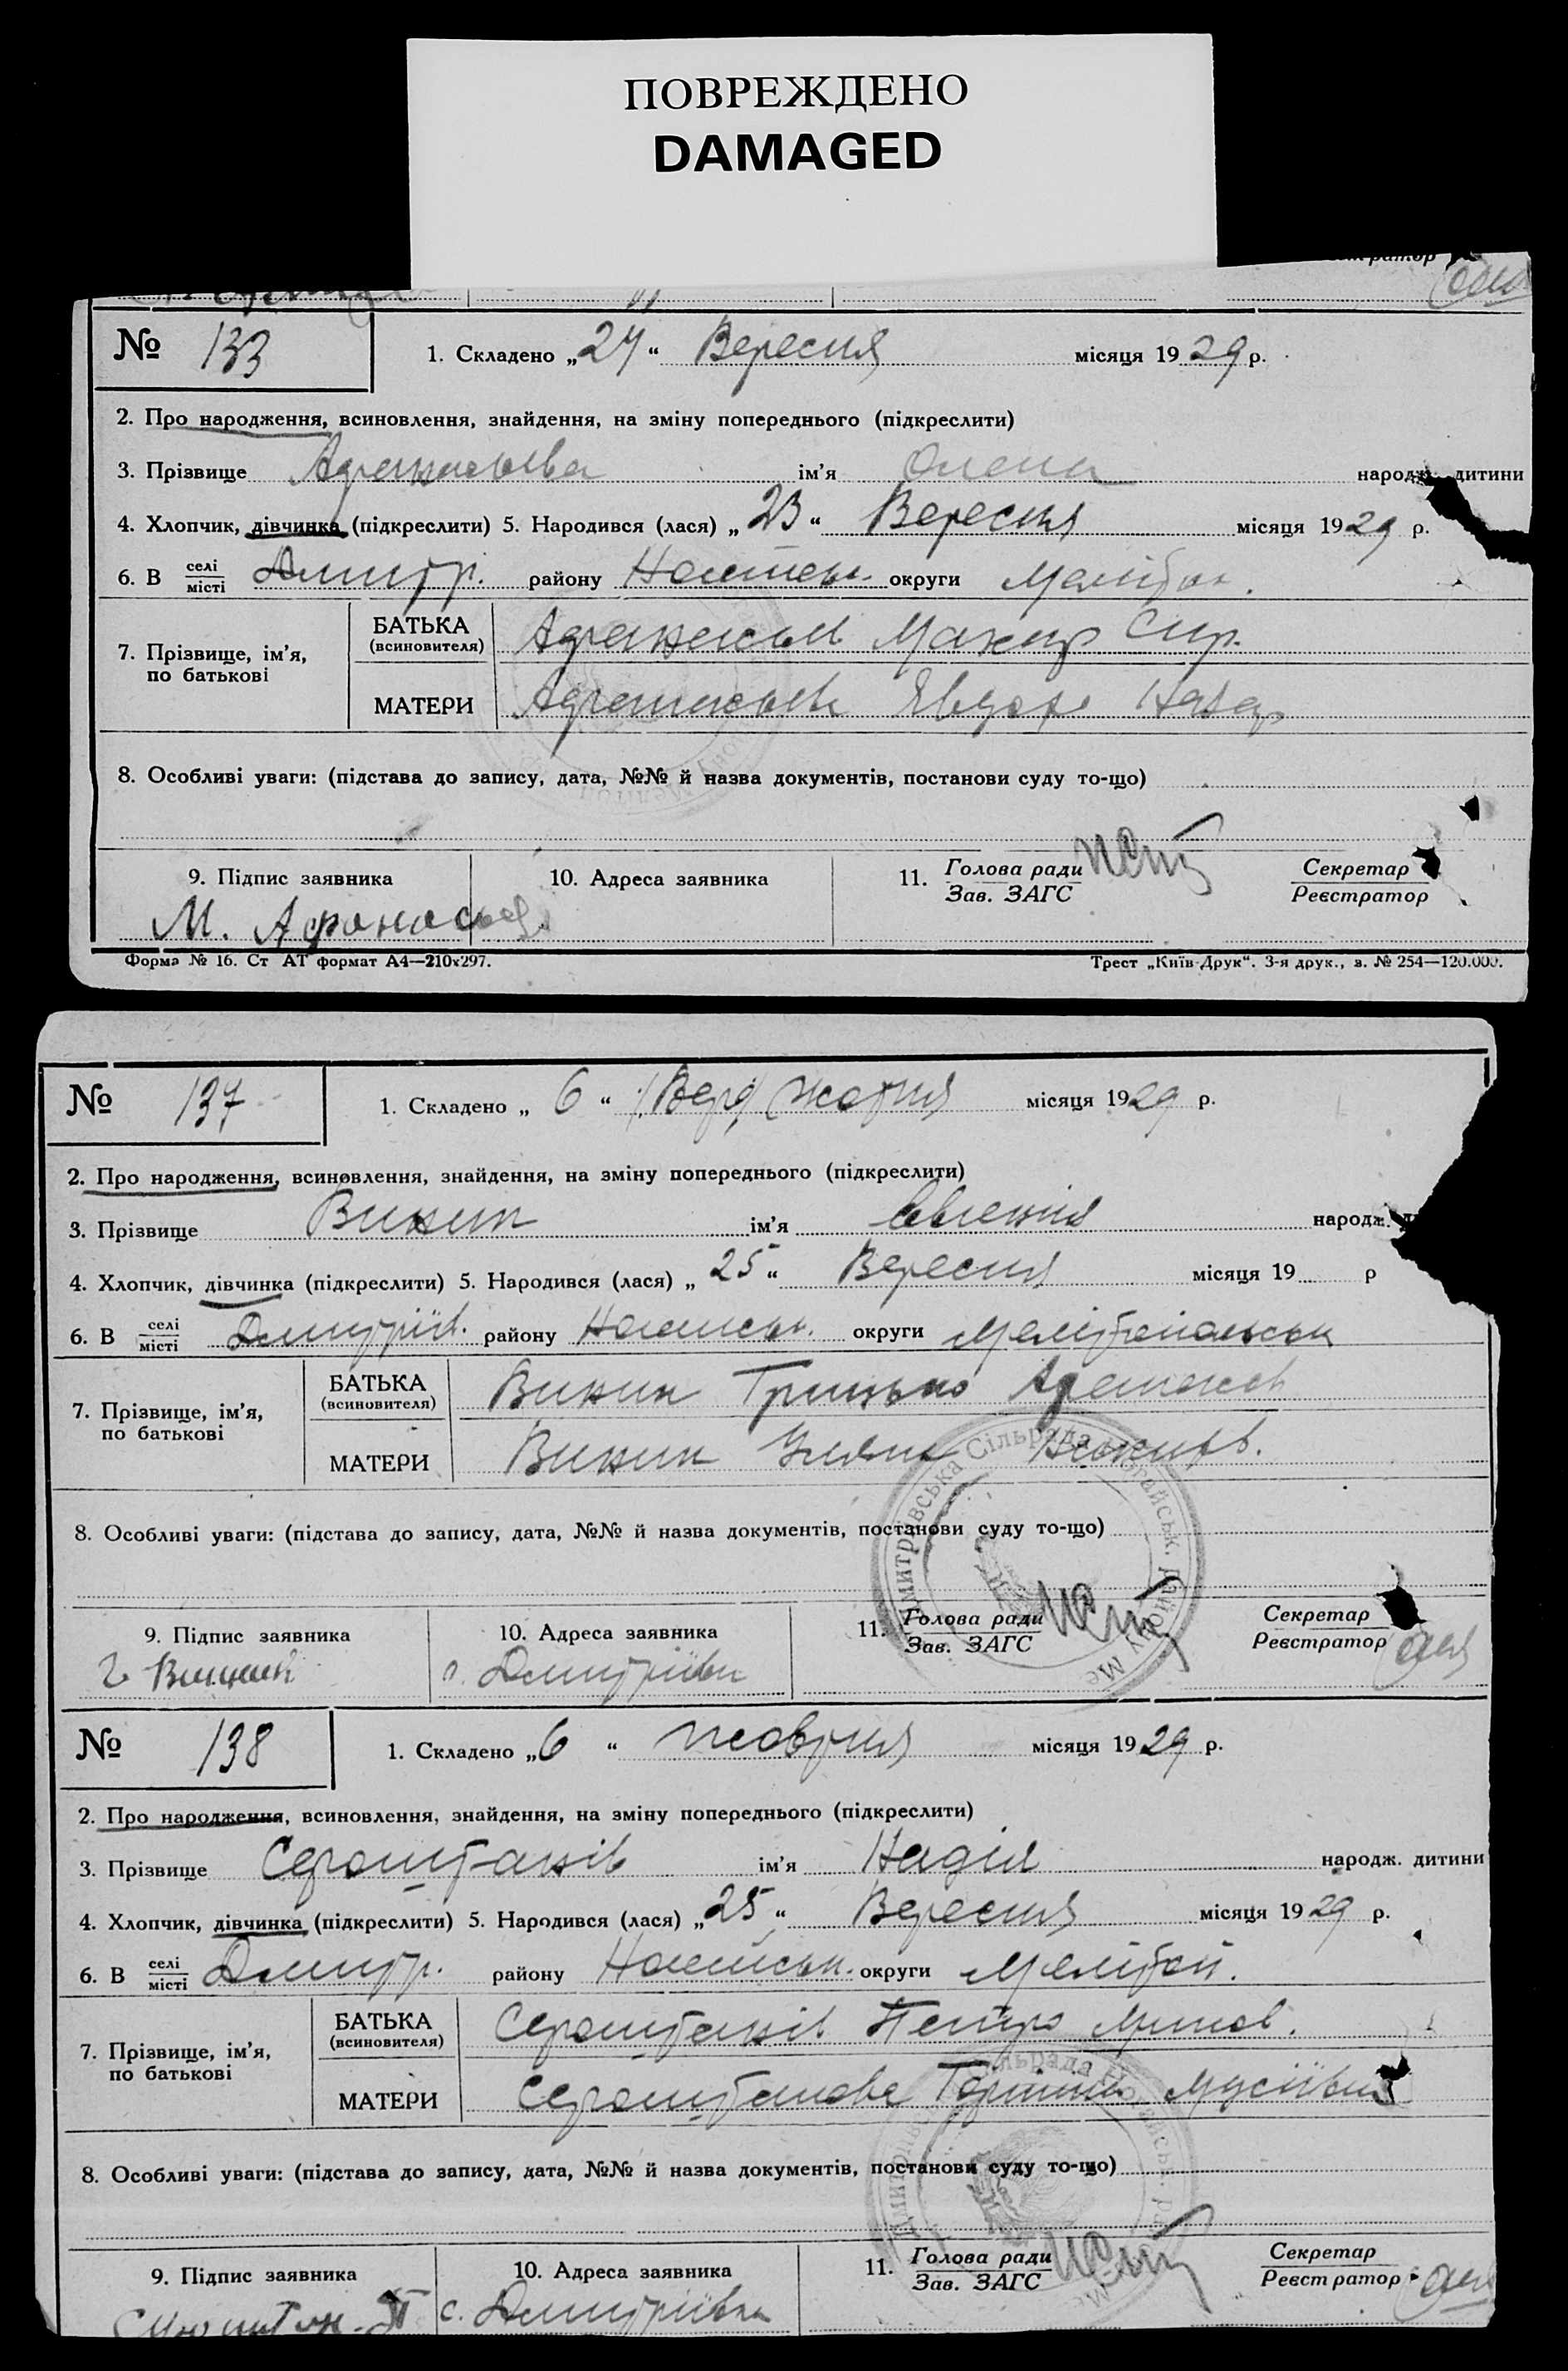 ПОВРЕЖДЕНО
DAMAGED
№ 133
1. Складено „24“ Вересня місяця 1929 р.
2. Про народження, всиновлення, знайдення, на зміну попереднього (підкреслити)
3. Прізвище ім’я Олена народж. дитини
4. Хлопчик, дівчинка (підкреслити) 5. Народився (лася) „23“ Вересня місяця 1929 р.
6. В селі місті Дмитр. району округи
7. Прізвище, ім’я, по батькові
БАТЬКА (всиновителя) Макар
МАТЕРИ Назар
8. Особливі уваги: (підстава до запису, дата, №№ й назва документів, постанови суду то-що)
9. Підпис заявника
10. Адреса заявника
11. Голова ради Зав. ЗАГС
Секретар Реєстратор
М. Афонасьев
Форма № 16. Ст АТ формат А4—210x297.
Трест „Київ-Друк“. 3-я друк., з. № 254—120.000.
№ 137
1. Складено „6“ (Вер) жовтня місяця 1929 р.
2. Про народження, всиновлення, знайдення, на зміну попереднього (підкреслити)
3. Прізвище ім’я Євгенія народж.
4. Хлопчик, дівчинка (підкреслити) 5. Народився (лася) „25“ Вересня місяця 19 р
6. В селі місті Дмитрів. району округи Мелітопольськ
7. Прізвище, ім’я, по батькові
БАТЬКА (всиновителя) Грицько
МАТЕРИ Уляна
8. Особливі уваги: (підстава до запису, дата, №№ й назва документів, постанови суду то-що)
9. Підпис заявника
10. Адреса заявника
11. Голова ради Зав. ЗАГС
Секретар Реєстратор
с. Дмитрівка
№ 138
1. Складено „6“ жовтня місяця 1929 р.
2. Про народження, всиновлення, знайдення, на зміну попереднього (підкреслити)
3. Прізвище Сероштанів ім’я Надія народж. дитини
4. Хлопчик, дівчинка (підкреслити) 5. Народився (лася) „25“ Вересня місяця 1929 р.
6. В селі місті Дмитр. району округи Мелітоп.
7. Прізвище, ім’я, по батькові
БАТЬКА (всиновителя) Сероштанів Петро
МАТЕРИ Сероштанова Мусіївна
8. Особливі уваги: (підстава до запису, дата, №№ й назва документів, постанови суду то-що)
9. Підпис заявника
10. Адреса заявника
11. Голова ради Зав. ЗАГС
Секретар Реєстратор
с. Дмитрівка